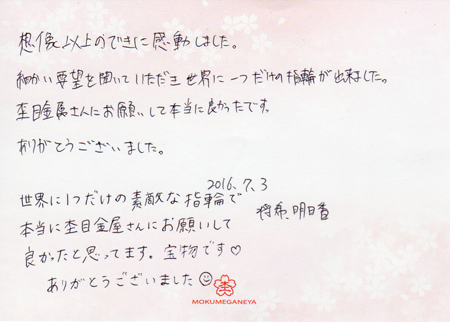 想像以上のできに感動しました。
細かい要望を聞いていただき世界に一つだけの指輪が出来ました。
杢目金屋さんにお願いして本当に良かったです。
ありがとうございました。
2016.7.3
将希、明日香
世界に1つだけの素敵な指輪で
本当に杢目金屋さんにお願いして
良かったと思ってます。宝物です♡
ありがとうございました☺
杢
MOKUMEGANEYA